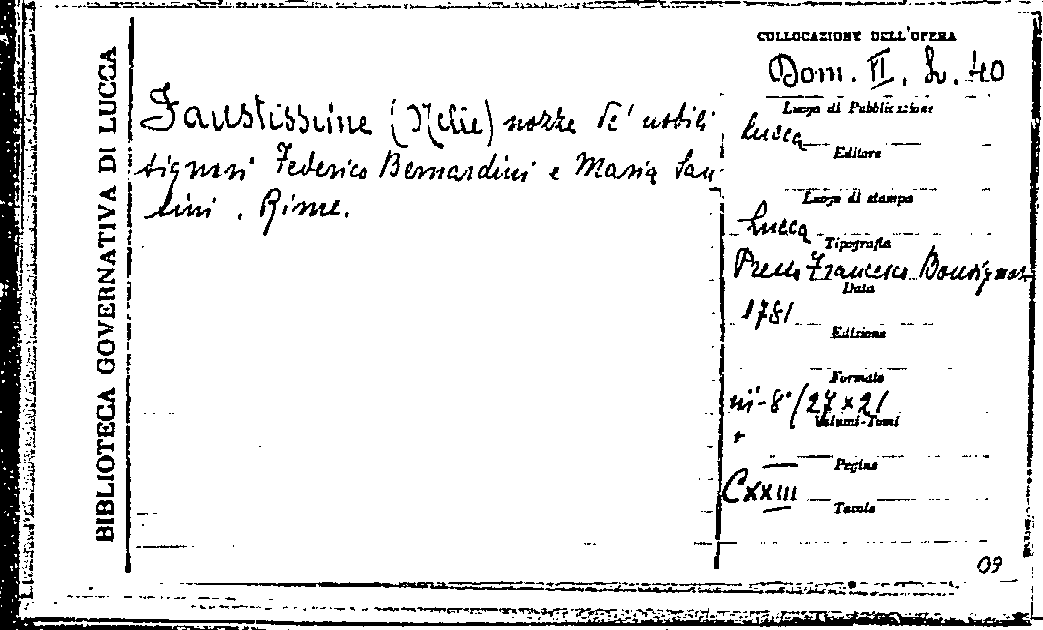 BIBLIOTECA GOVERNATIVA DI LUCCA
Faustissime (Nelle) nozze de' nobili
signori Federico Bernardini e Maria San
tini. Rime.
COLLOCAZIONE DELL'OPERA
Dom. VI. 40
Luogo di Pubblicazione
Lucca
Editore
Luogo di stampa
Lucca
Tipografia
Presso Francesco Bonsignori
Data
1781
Edizione
Formato
in-8° (27x21
Volumi-Tomi
Pagine
CXXIII
Tavole
09